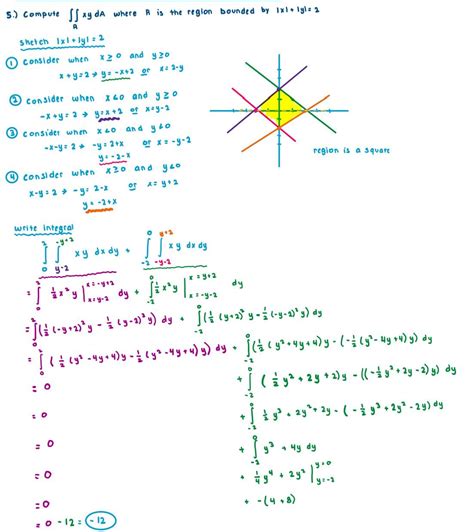 5.) Compute ∬ xy dA where R is the region bounded by |x|+|y|=2
R
Sketch |x|+|y|=2
① Consider when x≥0 and y≥0
x+y=2 → y=-x+2 or x=2-y
② Consider when x≤0 and y≥0
-x+y=2 → y=x+2 or x=y-2
③ Consider when x≤0 and y≤0
-x-y=2 → -y=2+x or x=-y-2
y=-2-x
④ Consider when x≥0 and y≤0
x-y=2 → -y=2-x or x=y+2
y=-2+x
region is a square
Write integral
∫₀² ∫_{y-2}^{-y+2} xy dx dy + ∫_{-2}^{0} ∫_{-y-2}^{y+2} xy dx dy
= ∫₀² ½x²y |_{x=y-2}^{x=-y+2} dy + ∫_{-2}^{0} ½x²y |_{x=-y-2}^{x=y+2} dy
= ∫₀² (½(-y+2)²y - ½(y-2)²y) dy + ∫_{-2}^{0} (½(y+2)²y - ½(-y-2)²y) dy
= ∫₀² (½(y²-4y+4)y - ½(y²-4y+4)y) dy + ∫_{-2}^{0} (½(y²+4y+4)y - (-½(y²-4y+4)y) dy
= 0 + ∫_{-2}^{0} (½y²+2y+2)y - ((-½y²+2y-2)y) dy
= 0 + ∫_{-2}^{0} ½y³+2y²+2y - (-½y³+2y²-2y) dy
= 0 + ∫_{-2}^{0} y³+4y dy
= 0 + ¼y⁴+2y² |_{y=-2}^{y=0}
= 0 + -(4+8)
= 0-12 = -12